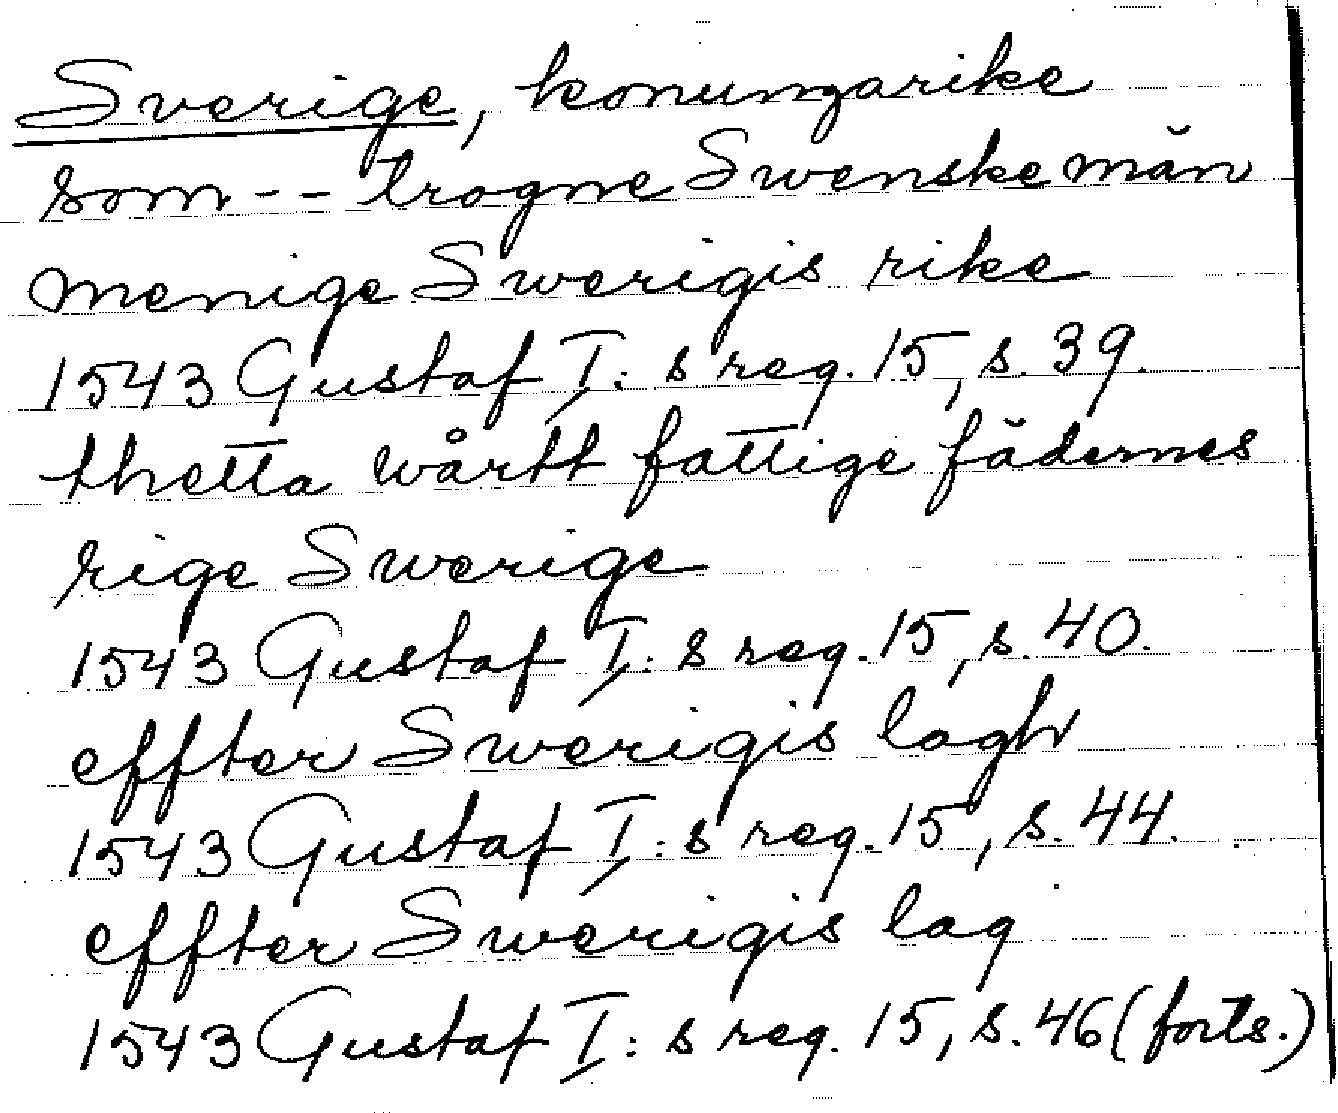 Sverige, konungarike
som -- trogne Swenske män
menige Swerigis rike
1543 Gustaf I:s reg. 15, s. 39.
thetta wårtt fattige fädernes
rige Swerige
1543 Gustaf I:s reg. 15, s. 40.
effter Swerigis lagh
1543 Gustaf I:s reg. 15, s. 44.
effter Swerigis lag
1543 Gustaf I:s reg. 15, s. 46 (forts.)